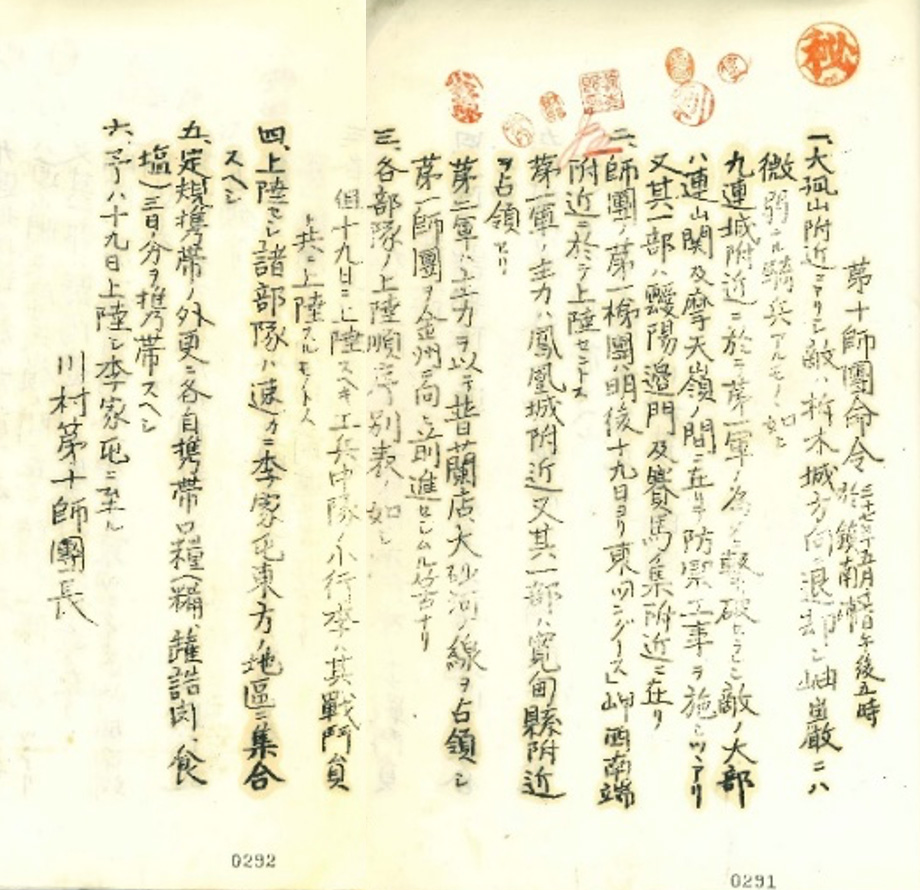 秘
第十師團命令 三十七年五月十七日午後五時 於鎮南浦
一、大孤山附近ニアリシ敵ハ柝木城方向ニ退却シ岫巌ニハ
微弱ナル騎兵アルモノヽ如シ
九連城附近ニ於テ第一軍ノ為メ撃破セラレシ敵ノ大部
ハ連山関及摩天嶺ノ間ニ在リテ防禦工事ヲ施シツヽアリ
又其一部ハ靉陽邊門及賽馬集附近ニ在リ
二、師團ノ第一梯團ハ明後十九日ヨリ東「コングース」岬西南端
附近ニ於テ上陸セントス
第一軍ノ主力ハ鳳凰城附近又其一部ハ寛甸縣附近
ヲ占領セリ
第二軍ハ主力ヲ以テ普蘭店、大砂河ノ線ヲ占領シ
第一師團ヲ金州ニ向ヒ前進セシムル筈ナリ
三、各部隊ノ上陸順序別表ノ如シ
但十九日ニ上陸スヘキ工兵中隊ノ小行李ハ其戰鬥員
ト共ニ上陸スルモノトス
四、上陸セシ諸部隊ハ速カニ李家屯東方ノ地區ニ集合
スヘシ
五、定規携帯ノ外更ニ各自携帯口糧(糒、罐詰肉、食
塩)三日分ヲ携帯スヘシ
六、予ハ十九日上陸シ李家屯ニ至ル
川村第十師團長
0291
0292